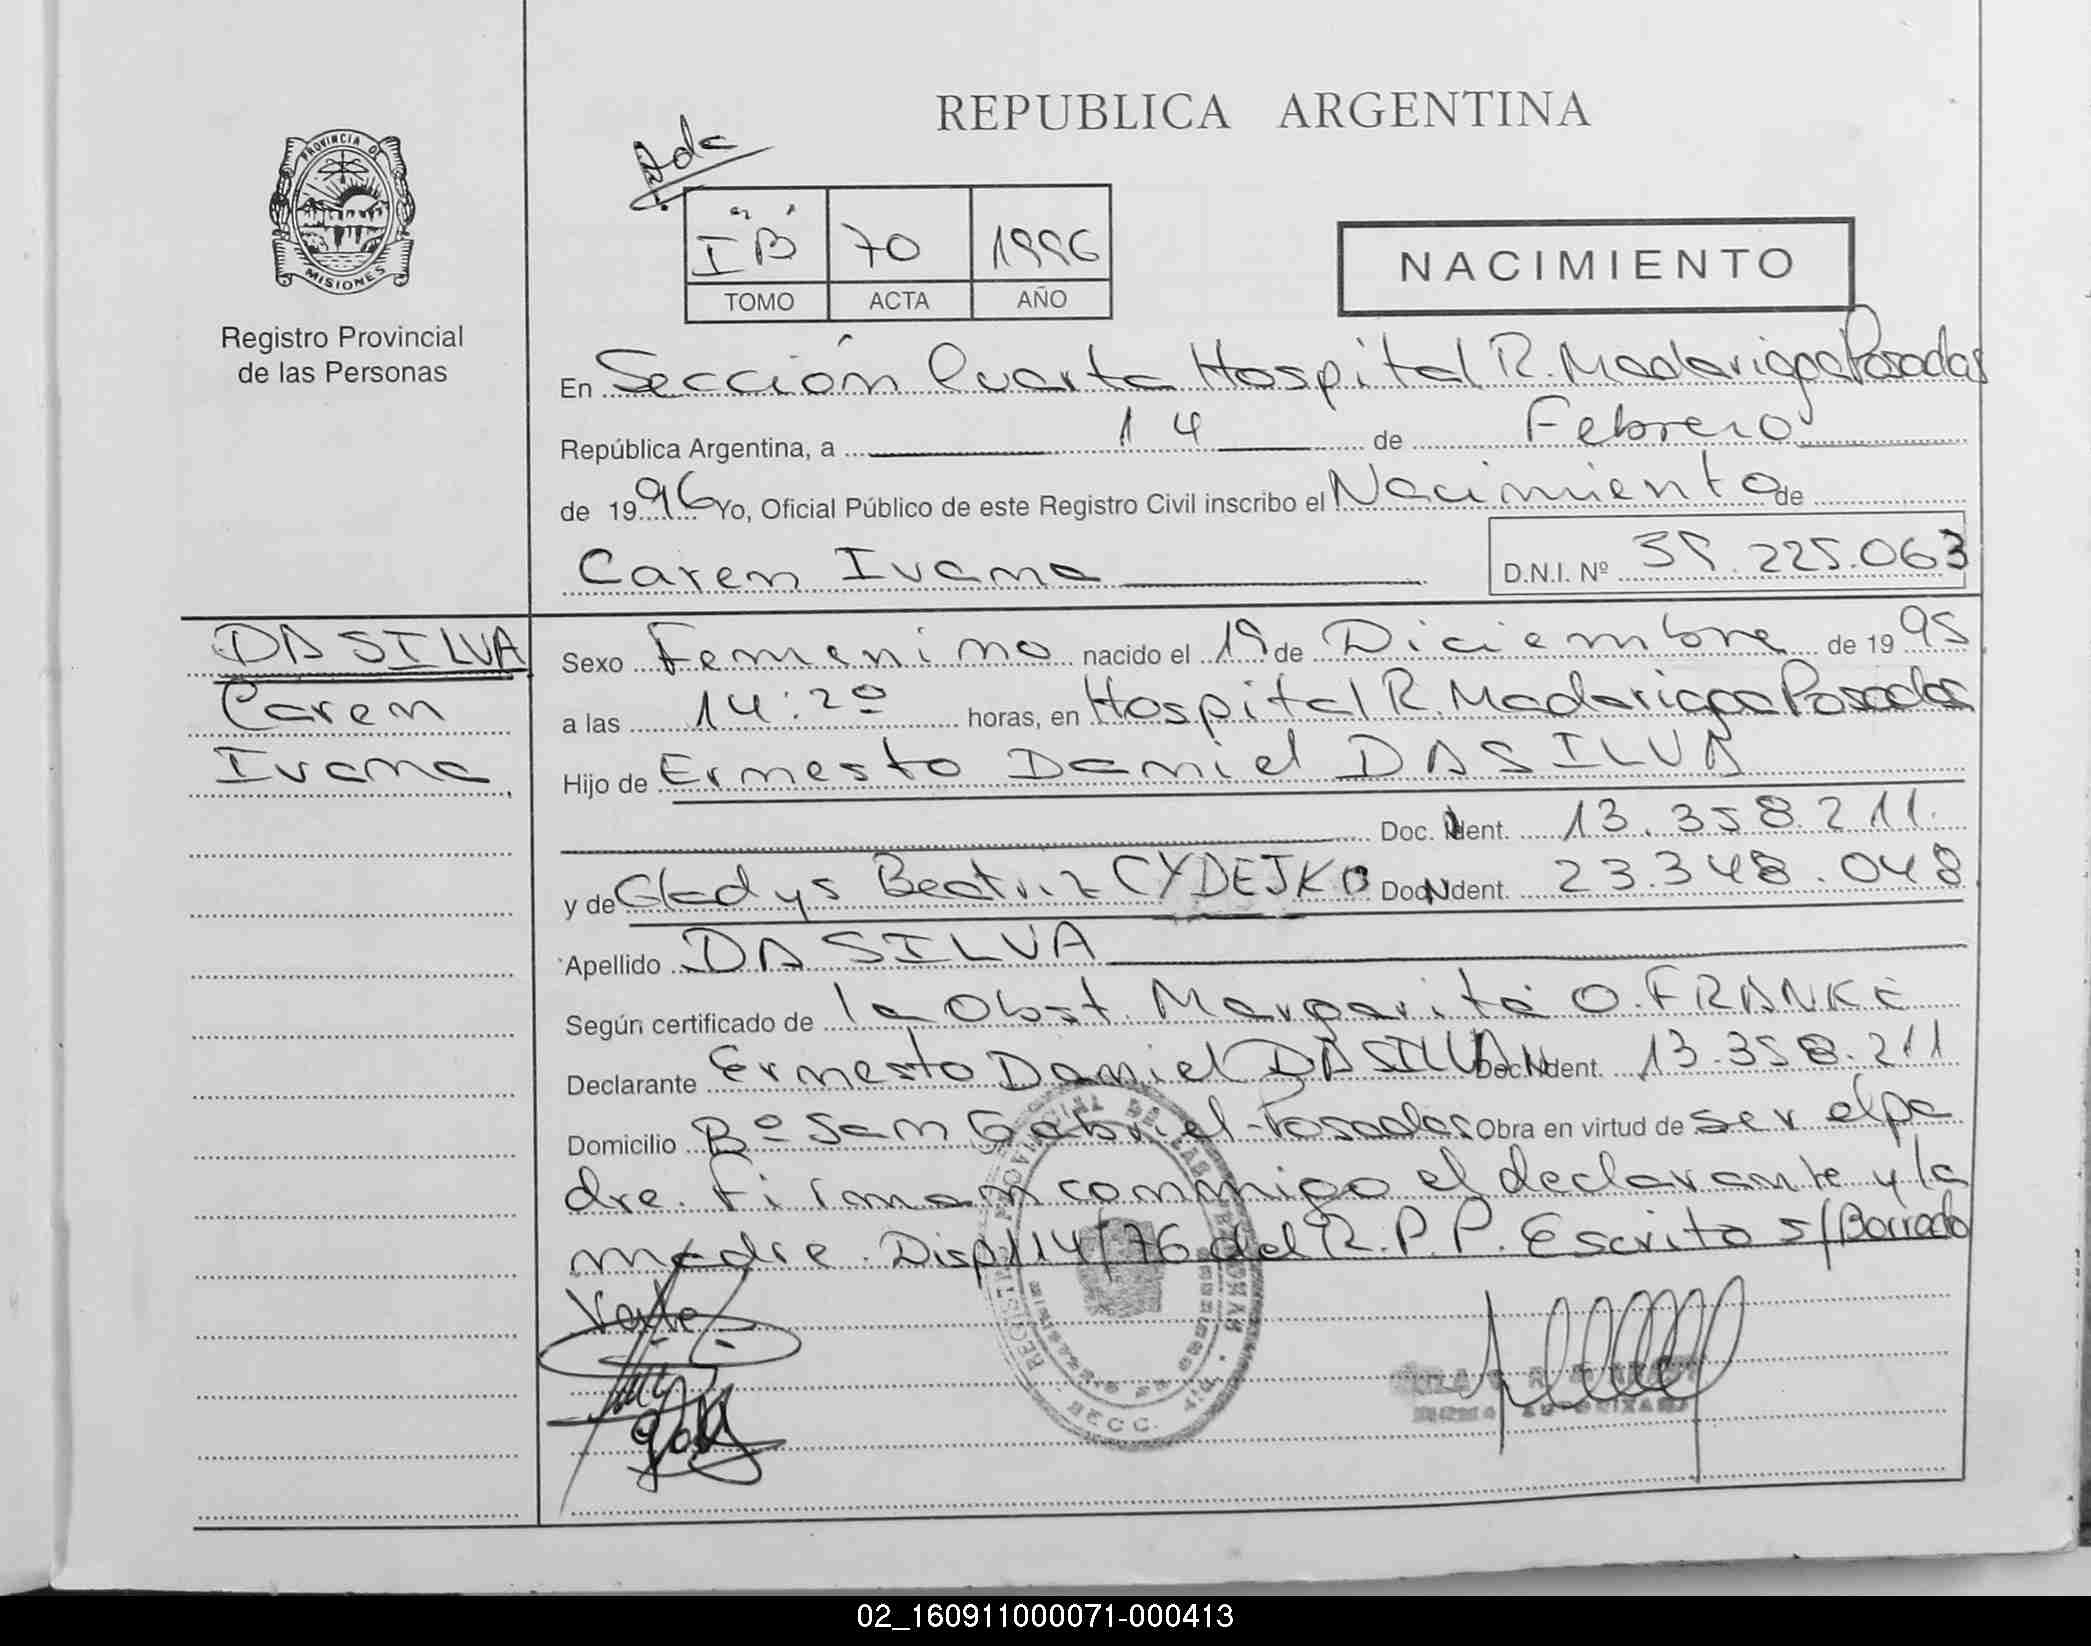 REPUBLICA ARGENTINA
PROVINCIA DE
MISIONES
Registro Provincial
de las Personas
Ada
"I B" 70 1996
TOMO ACTA AÑO
NACIMIENTO
En Sección Cuarta Hospital R. Madariaga Posadas
República Argentina, a 14 de Febrero
de 1996 Yo, Oficial Público de este Registro Civil inscribo el Nacimiento de
Caren Ivana D.N.I. Nº 39.225.063
DA SILVA
Caren
Ivana
Sexo Femenino nacido el 19 de Diciembre de 1995
a las 14:20 horas, en Hospital R. Madariaga Posadas
Hijo de Ernesto Daniel DA SILVA
Doc. Ident. 13.358.211.
y de Gladys Beatriz CYDEJKO Doc. Ident. 23.348.048
Apellido DA SILVA
Según certificado de la Obst. Margarita O. FRANKE
Declarante Ernesto Daniel DA SILVA Doc. Ident. 13.358.211
Domicilio Bº San Gabriel-Posadas Obra en virtud de ser el pa
dre. Firman conmigo el declarante y la
madre. Disp 114/76 del R.P.P. Escrito s/Borrado
Vale
REGISTRO PROVINCIAL DE LAS PERSONAS
SECC.
02_160911000071-000413